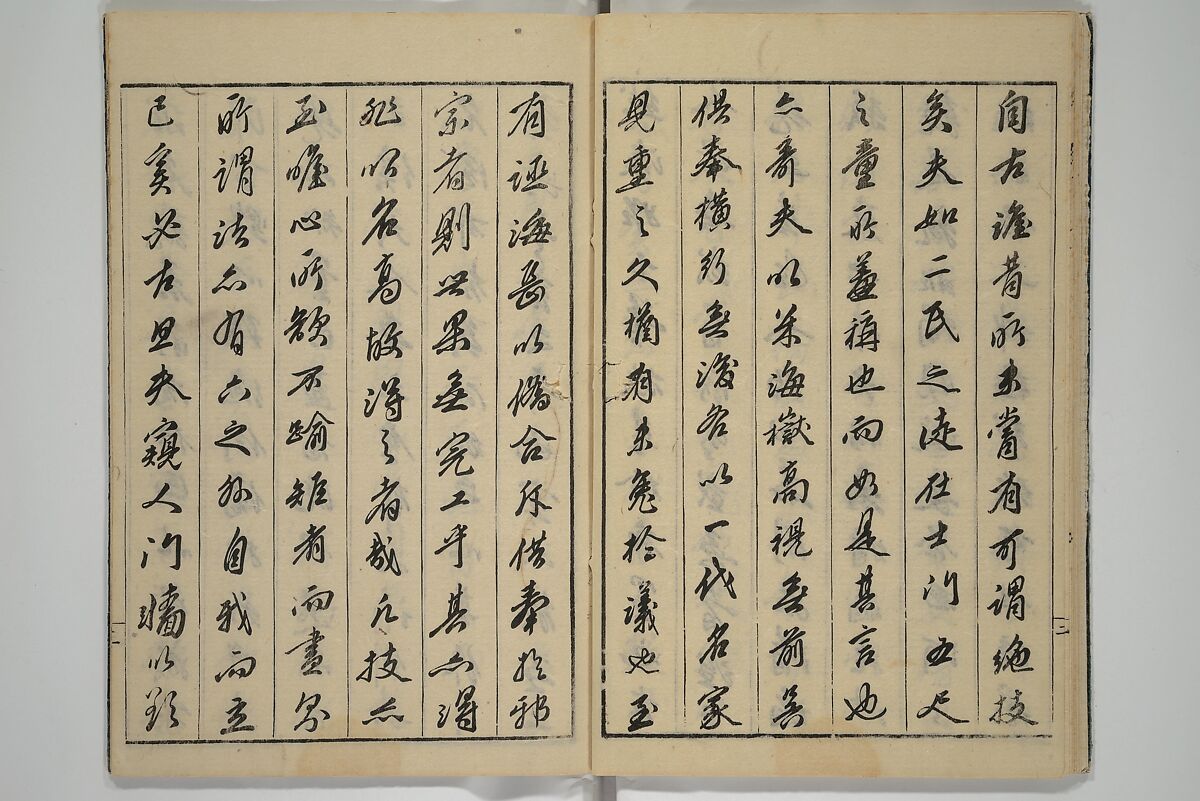 自古昔所未嘗有可謂絶技
矣夫如二氏之徒仕士門五尺
之童所羞稱也而如是其言也
亦奇夫以米海嶽高視無前吳
供奉橫行無後各以一代名家
見重之久猶有未免於議也至
有誣海岳以僞合斥供奉於邪
宗者則世果無完工乎其亦得
非以名高故得之者哉凡技亦
至唯心所欲不踰矩者而畫
所謂法亦有六之外自我而立
已矣必古且夫窺人門牆以